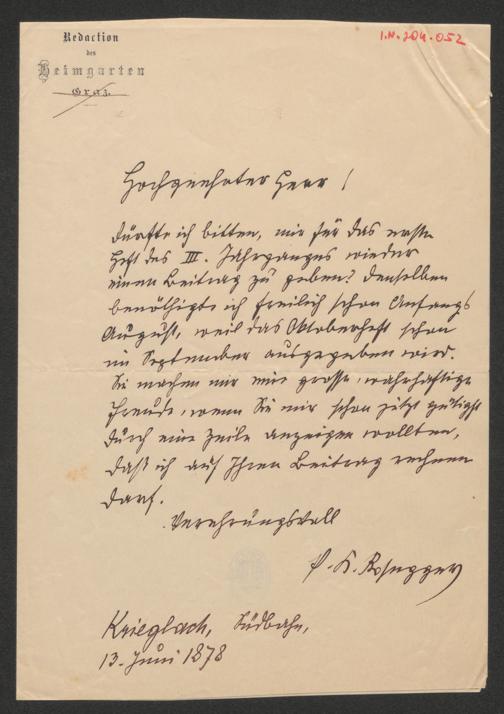 Redaction
des
Heimgarten
Graz.
I.N. 204.052
Hochgeehrter Herr!
Dürfte ich bitten, mir für das erste
Heft des III. Jahrganges wieder
einen Beitrag zu geben? Denselben
benöthigte ich freilich schon Anfangs
August, weil das Oktoberheft schon
im September ausgegeben wird.
Sie machen mir eine grosse, wahrhaftige
Freude, wenn Sie mir schon jetzt gütigst
durch eine Zeile anzeigen wollten,
daß ich auf Ihren Beitrag rechnen
darf.
Verehrungsvoll
P. K. Rosegger
Krieglach, Südbahn,
13. Juni 1878